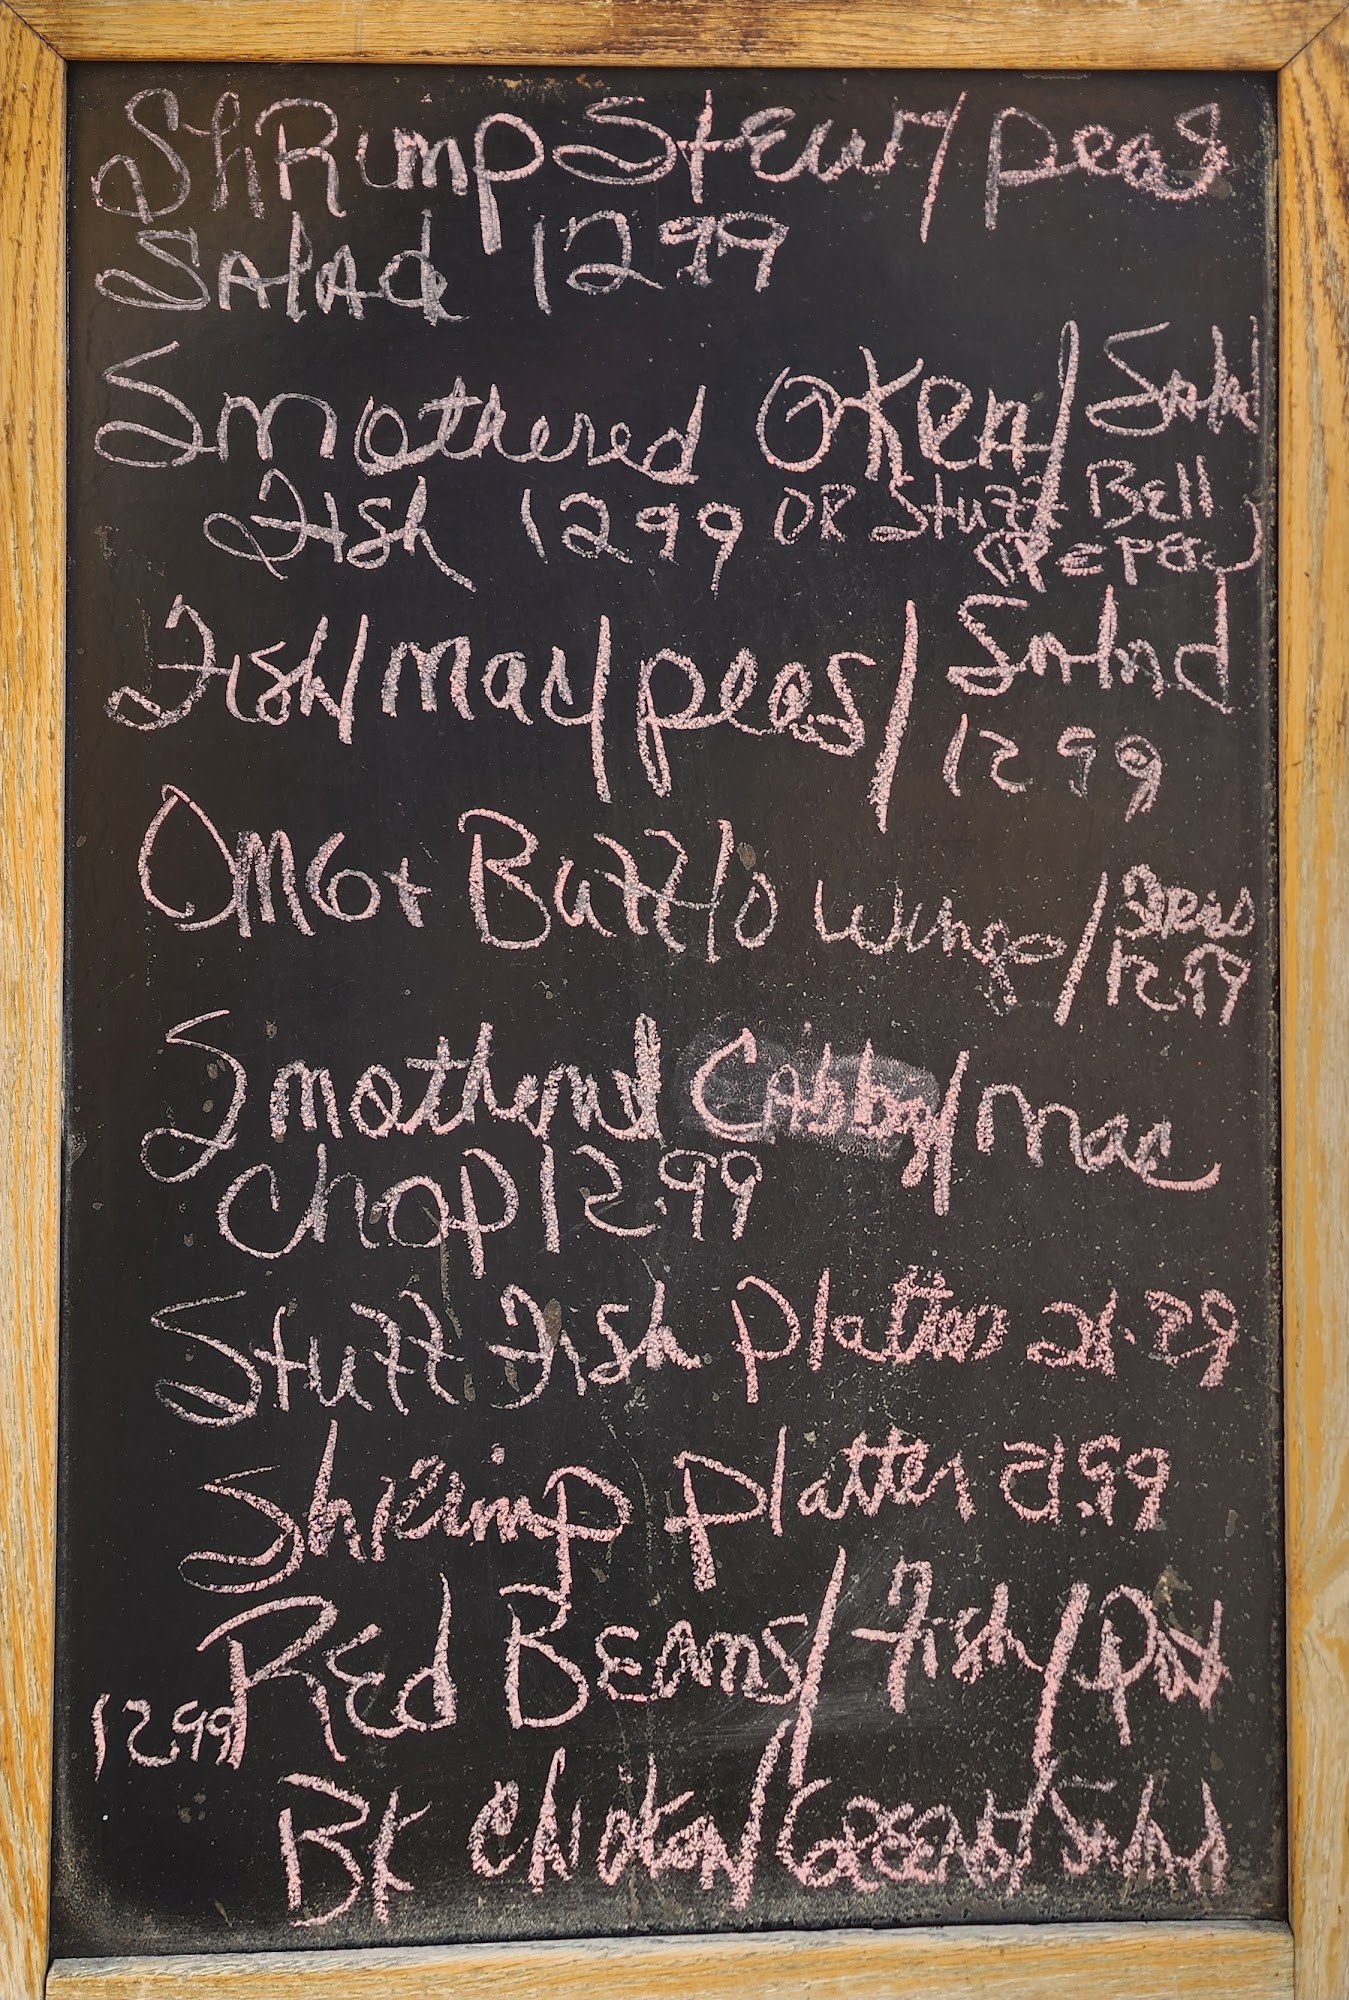 ShRimp Stew / peas
SAlAd 12 99
Smothered OKRA / SAlad
Fish 12 99 OR Stuff Bell
Fish / Mac / peas / SAlad
12 99
OMG + Buffلo Wings / Fries
12.99
Smothered Cabbag / mac
Chop 12.99
Stuff Fish platter 21.99
Shrimp platter 21.99
REd BEANS / Fish /
12 99
BK Chicken / GREENS / SAlad